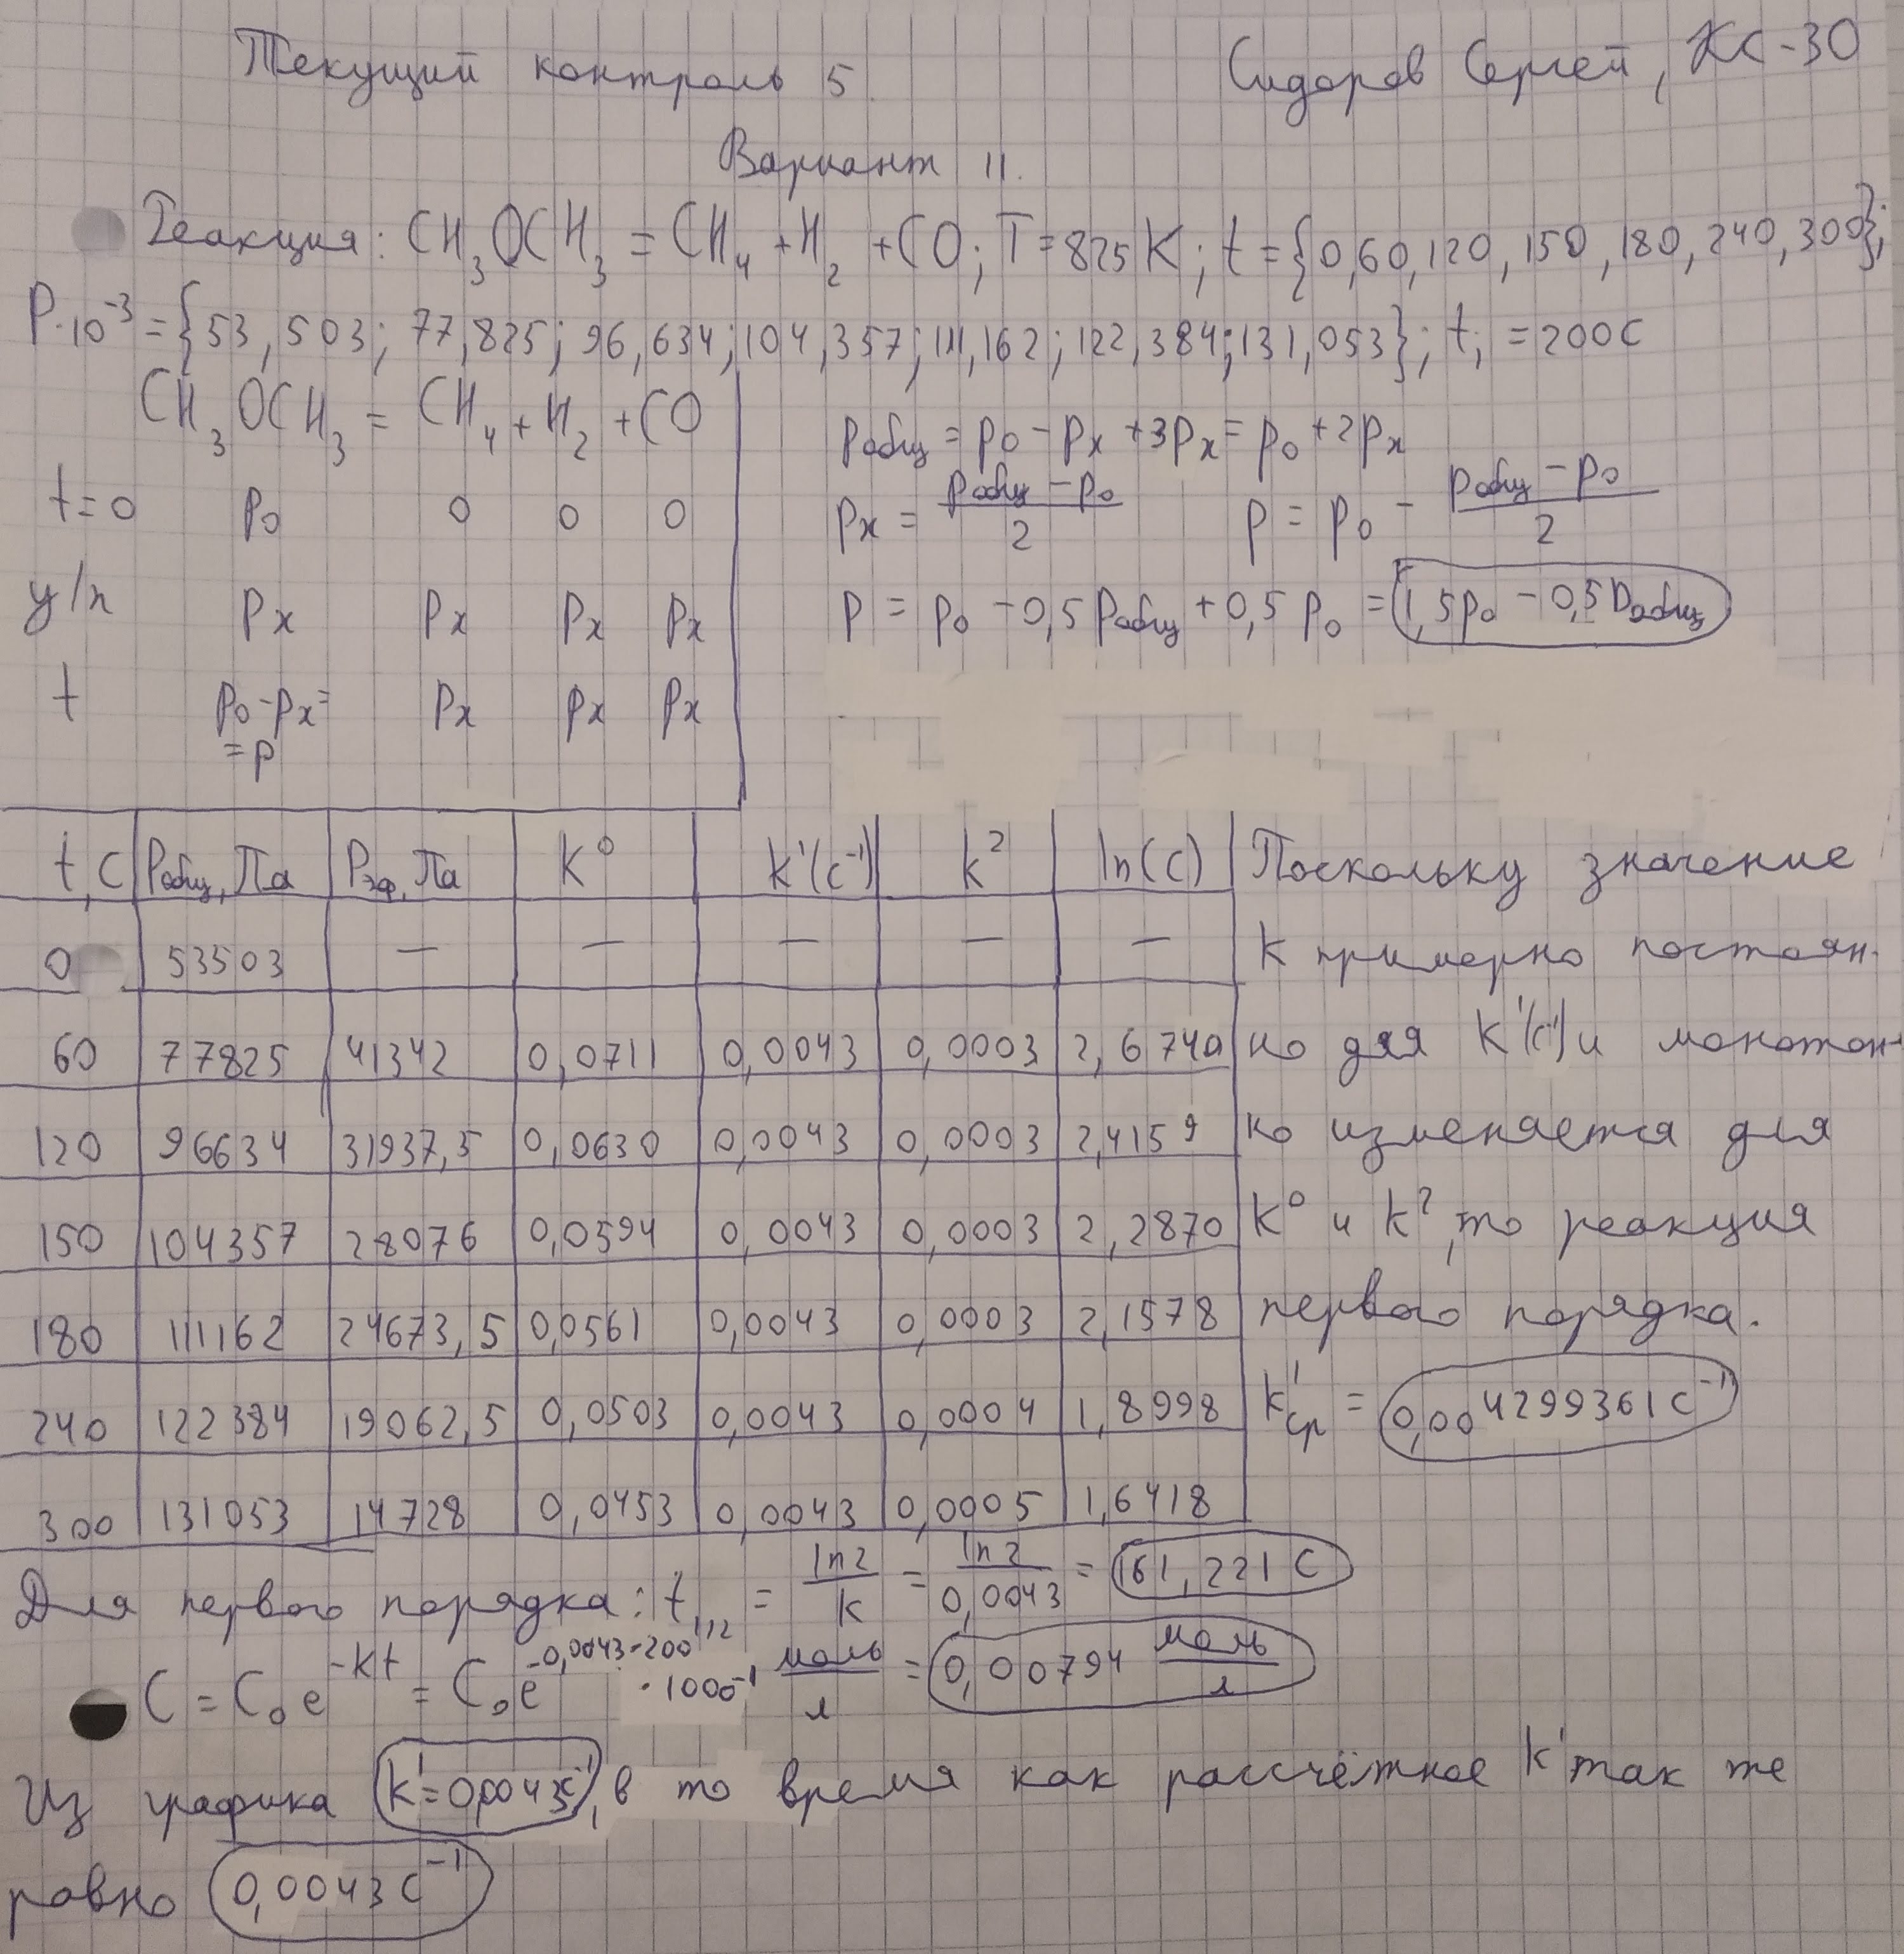 Текущий контроль 5. Сидоров Сергей, КС-30
Вариант 11.
Реакция: CH₃OCH₃ = CH₄ + H₂ + CO; T = 825 K; t = {0, 60, 120, 150, 180, 240, 300};
P·10⁻³ = {53,503; 77,825; 96,634; 104,357; 111,162; 122,384; 131,053}; t₁ = 200 с
CH₃OCH₃ = CH₄ + H₂ + CO
t=0 p₀ 0 0 0
у/п pₓ pₓ pₓ pₓ
t p₀-pₓ= pₓ pₓ pₓ
=p
pобщ = p₀ - pₓ + 3pₓ = p₀ + 2pₓ
pₓ = (pобщ - p₀)/2 p = p₀ - (pобщ - p₀)/2
p = p₀ - 0,5 pобщ + 0,5 p₀ = 1,5p₀ - 0,5 pобщ
t, с Pобщ, Па Pэф, Па K⁰ k'(с⁻¹) k² ln(c)
0 53503 — — — — —
60 77825 41342 0,0711 0,0043 0,0003 2,6740
120 96634 31937,5 0,0630 0,0043 0,0003 2,4159
150 104357 28076 0,0594 0,0043 0,0003 2,2870
180 111162 24673,5 0,0561 0,0043 0,0003 2,1578
240 122384 19062,5 0,0503 0,0043 0,0004 1,8998
300 131053 14728 0,0453 0,0043 0,0005 1,6418
Поскольку значение
K примерно постоян-
но для K'(с⁻¹) и монотон-
но изменяется для
K⁰ и k², то реакция
первого порядка.
k'ср = 0,004299361 с⁻¹
Для первого порядка: t₁/₂ = ln2/k = ln2/0,0043 = 161,221 с
C = C₀e^(-kt) = C₀e^(-0,0043·200) · 1000⁻¹ моль/л = 0,00794 моль/л
Из графика k' = 0,0043с⁻¹, в то время как рассчётное k' так же
равно 0,0043 с⁻¹